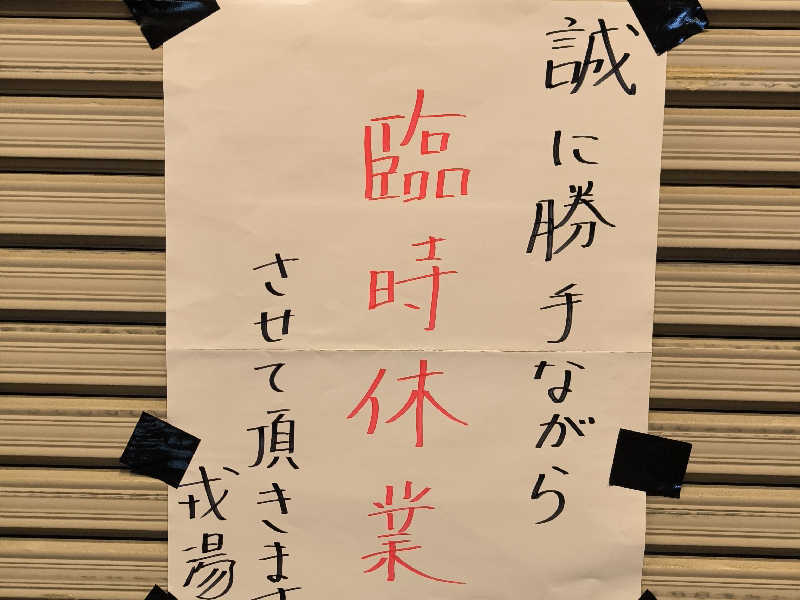 誠に勝手ながら
臨時休業
させて頂きます
戎湯